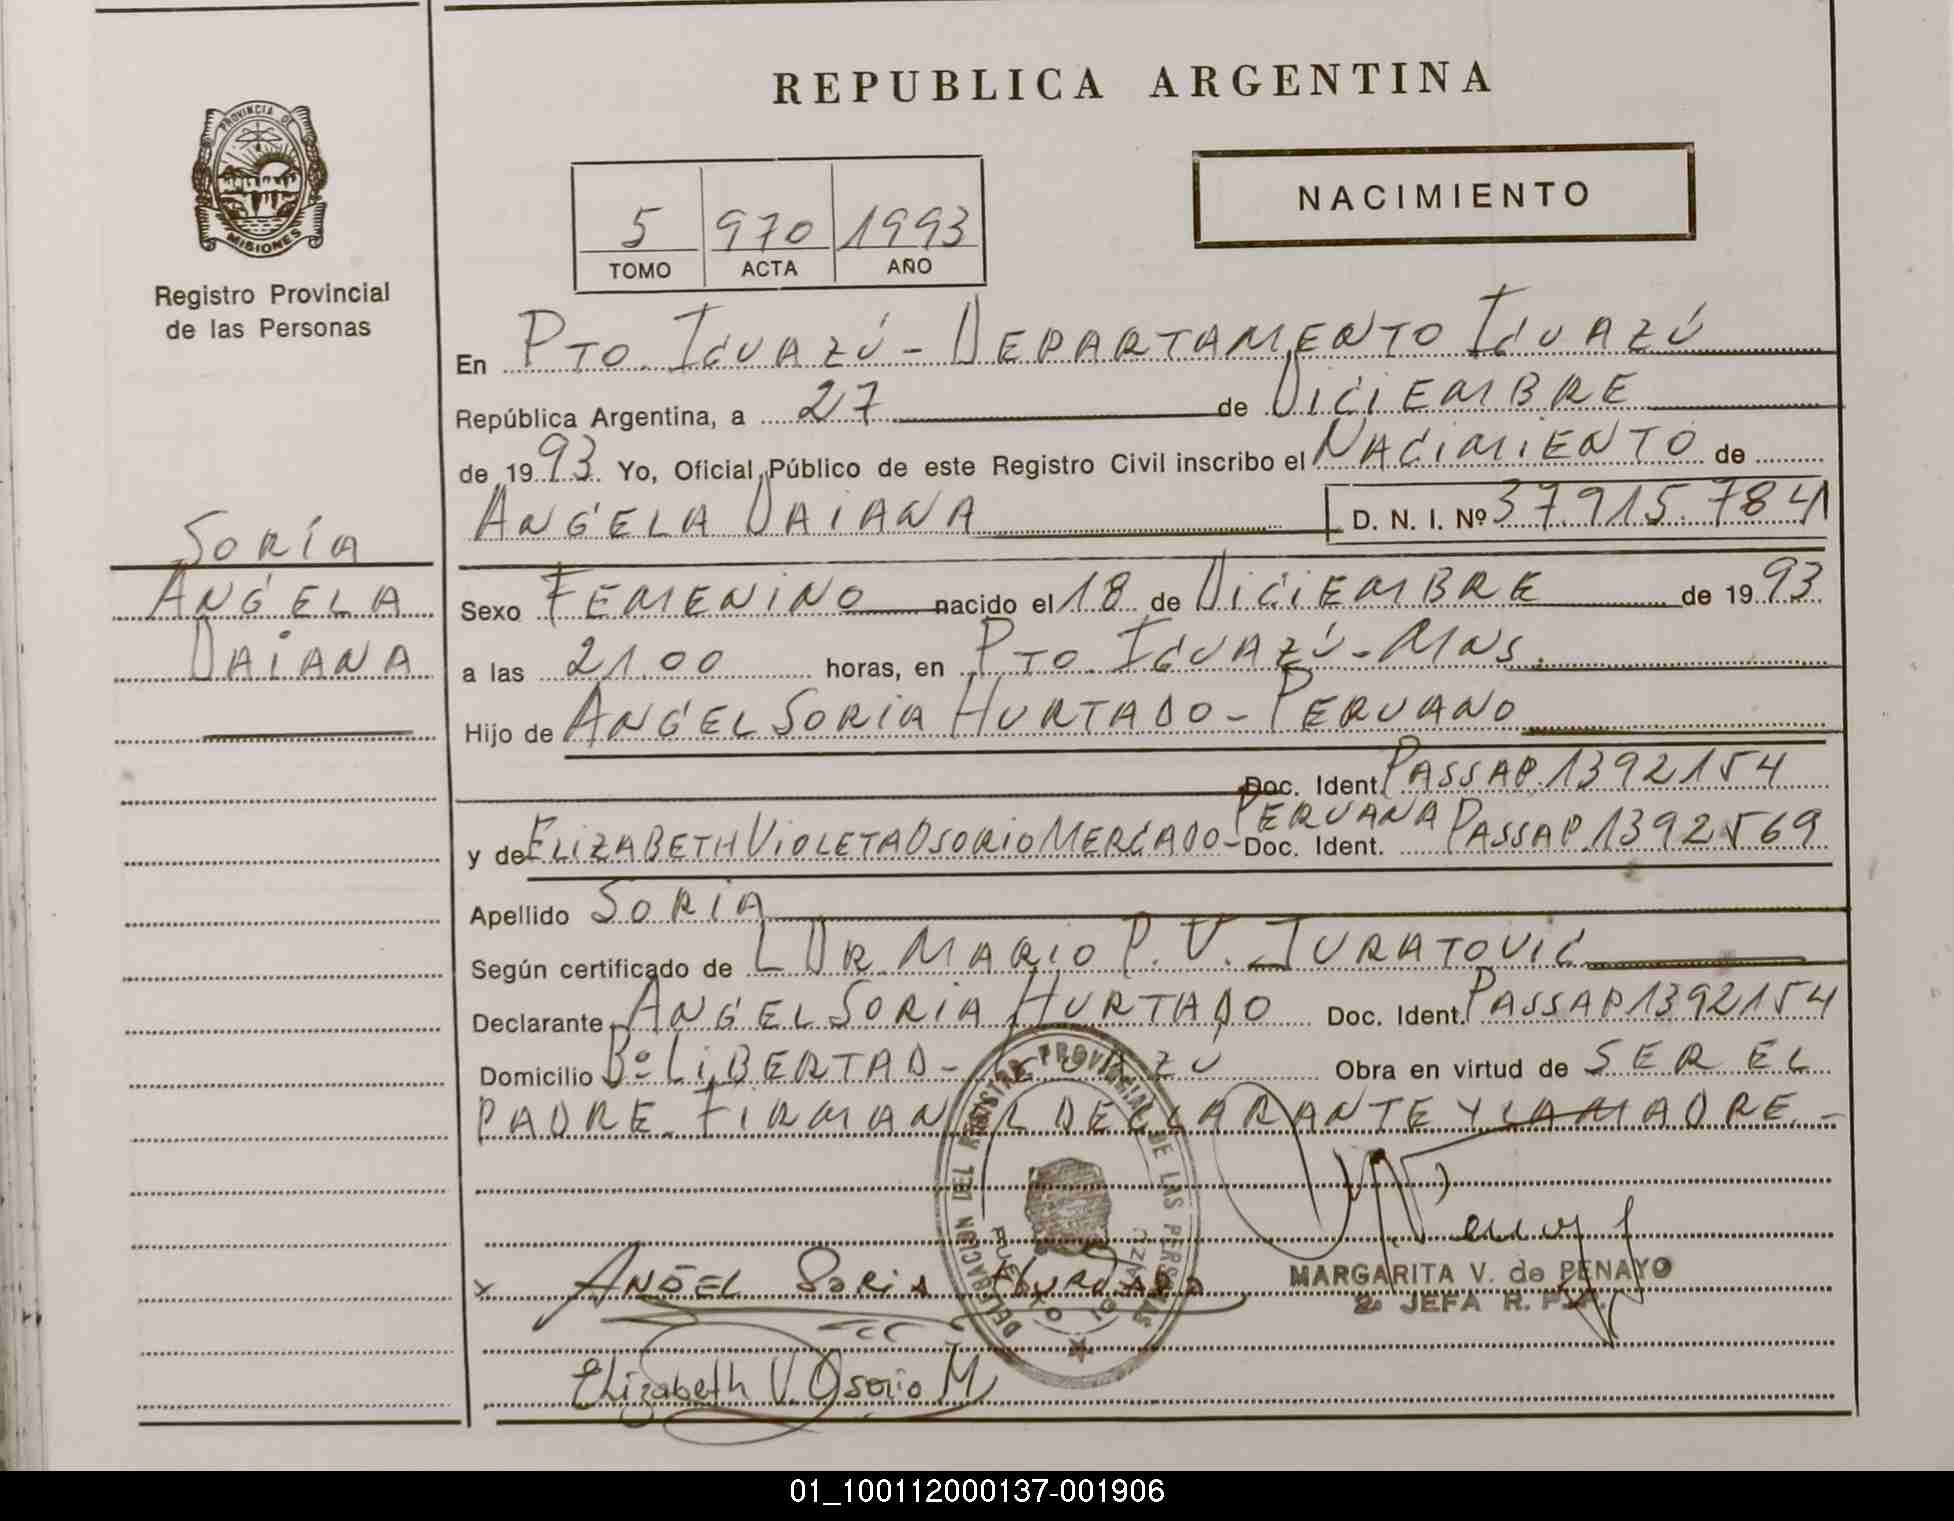 REPUBLICA ARGENTINA
PROVINCIA DE
MISIONES
Registro Provincial
de las Personas
NACIMIENTO
5 970 1993
TOMO ACTA AÑO
En PTO. IGUAZÚ - DEPARTAMENTO IGUAZÚ
República Argentina, a 27 de DICIEMBRE
de 1993 Yo, Oficial Público de este Registro Civil inscribo el NACIMIENTO de
ANGELA DAIANA D. N. I. Nº 37.915.784
SORIA
ANGELA
DAIANA
Sexo FEMENINO nacido el 18 de DICIEMBRE de 1993
a las 21.00 horas, en PTO. IGUAZÚ - MNS.
Hijo de ANGEL SORIA HURTADO - PERUANO
Doc. Ident. PASSAP. 1392154
y de ELIZABETH VIOLETA OSORIO MERCADO - PERUANA Doc. Ident. PASSAP. 1392569
Apellido SORIA
Según certificado de DR. MARIO P. V. JURATOVIC
Declarante ANGEL SORIA HURTADO Doc. Ident. PASSAP 1392154
Domicilio Bº LIBERTAD - IGUAZU Obra en virtud de SER EL
PADRE. FIRMAN EL DECLARANTE Y LA MADRE. -
DELEGACION DEL REGISTRO PROVINCIAL DE LAS PERSONAS
PUERTO IGUAZU
x ANGEL SORIA HURTADO
MARGARITA V. de PENAYO
JEFA R. P. P.
Elizabeth V. Osorio M
01_100112000137-001906